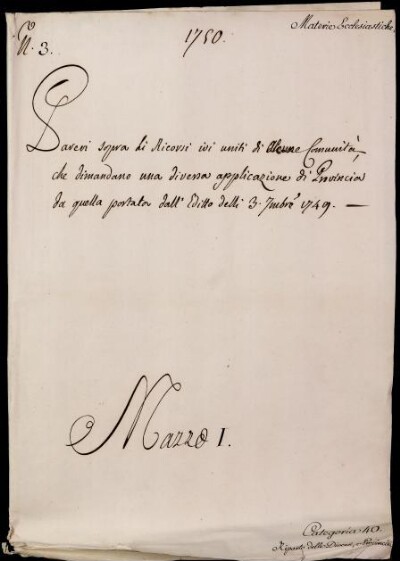 Materie Ecclesiastiche.
N.° 3.
1750.
Pareri sopra li Ricorsi ivi uniti di alcune Comunità,
che dimandano una diversa applicazione di Provincia
da quella portata dall' Editto delli 3. 7mbre 1749. —
Mazzo I.
Categoria 40.
Riparto delle Diocesi, e Provincie